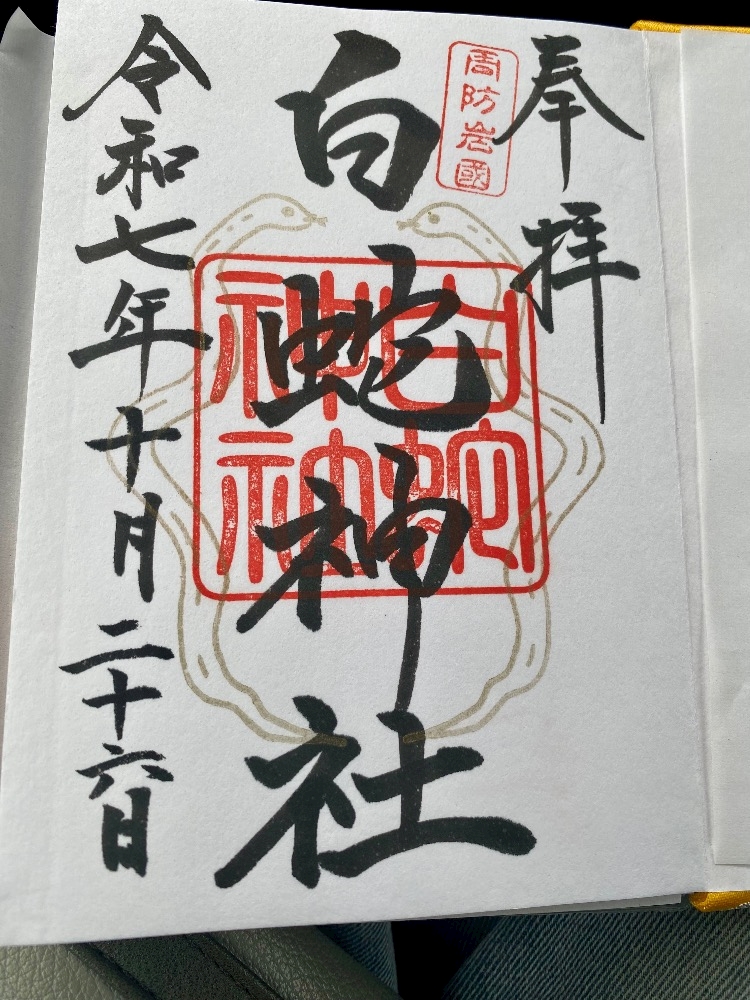 奉拝
周防岩國
白蛇神社
白蛇神社
令和七年十月二十六日